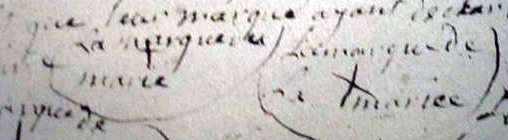 que leur marque ayant declar
La marque du
La marque de
marie
La mariee
arque de